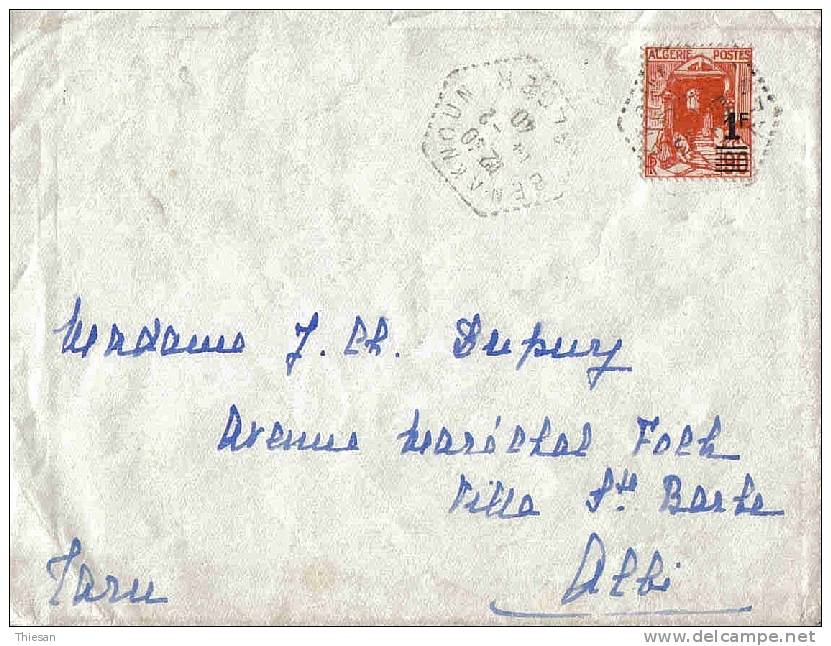 ALGERIE POSTES
1F
90
BEN AKNOUN ALGER
12 30
14 - 2
40
Madame J. Ch. Dupuy
Avenue Maréchal Foch
Villa Ste Barbe
Albi
Tarn
Thiesan
www.delcampe.net